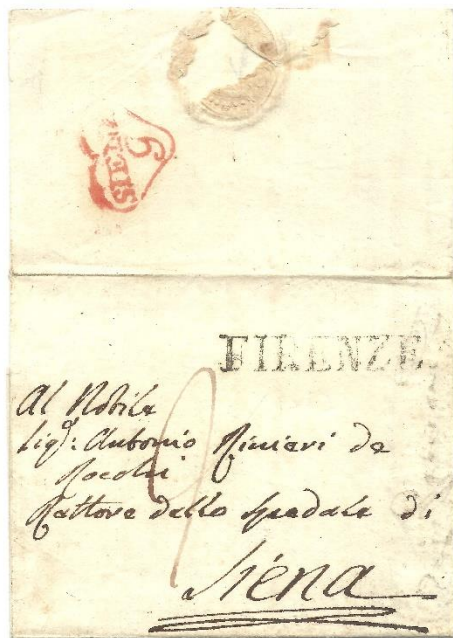 FIRENZE
Al Nobile
Sig.: Antonio Rinieri de
Rocchi
Rettore dello spedale di
Siena